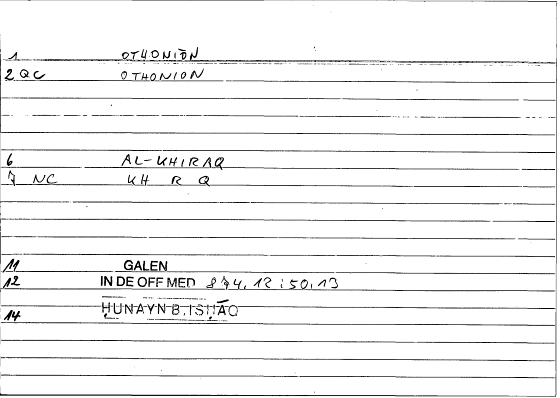 1 OTHONIŌN
2 QC OTHONION
6 AL-KHIRAQ
7 NC KH R Q
11 GALEN
12 IN DE OFF MED 874, 12 : 50, 13
14 ḤUNAYN B. ISḤĀQ